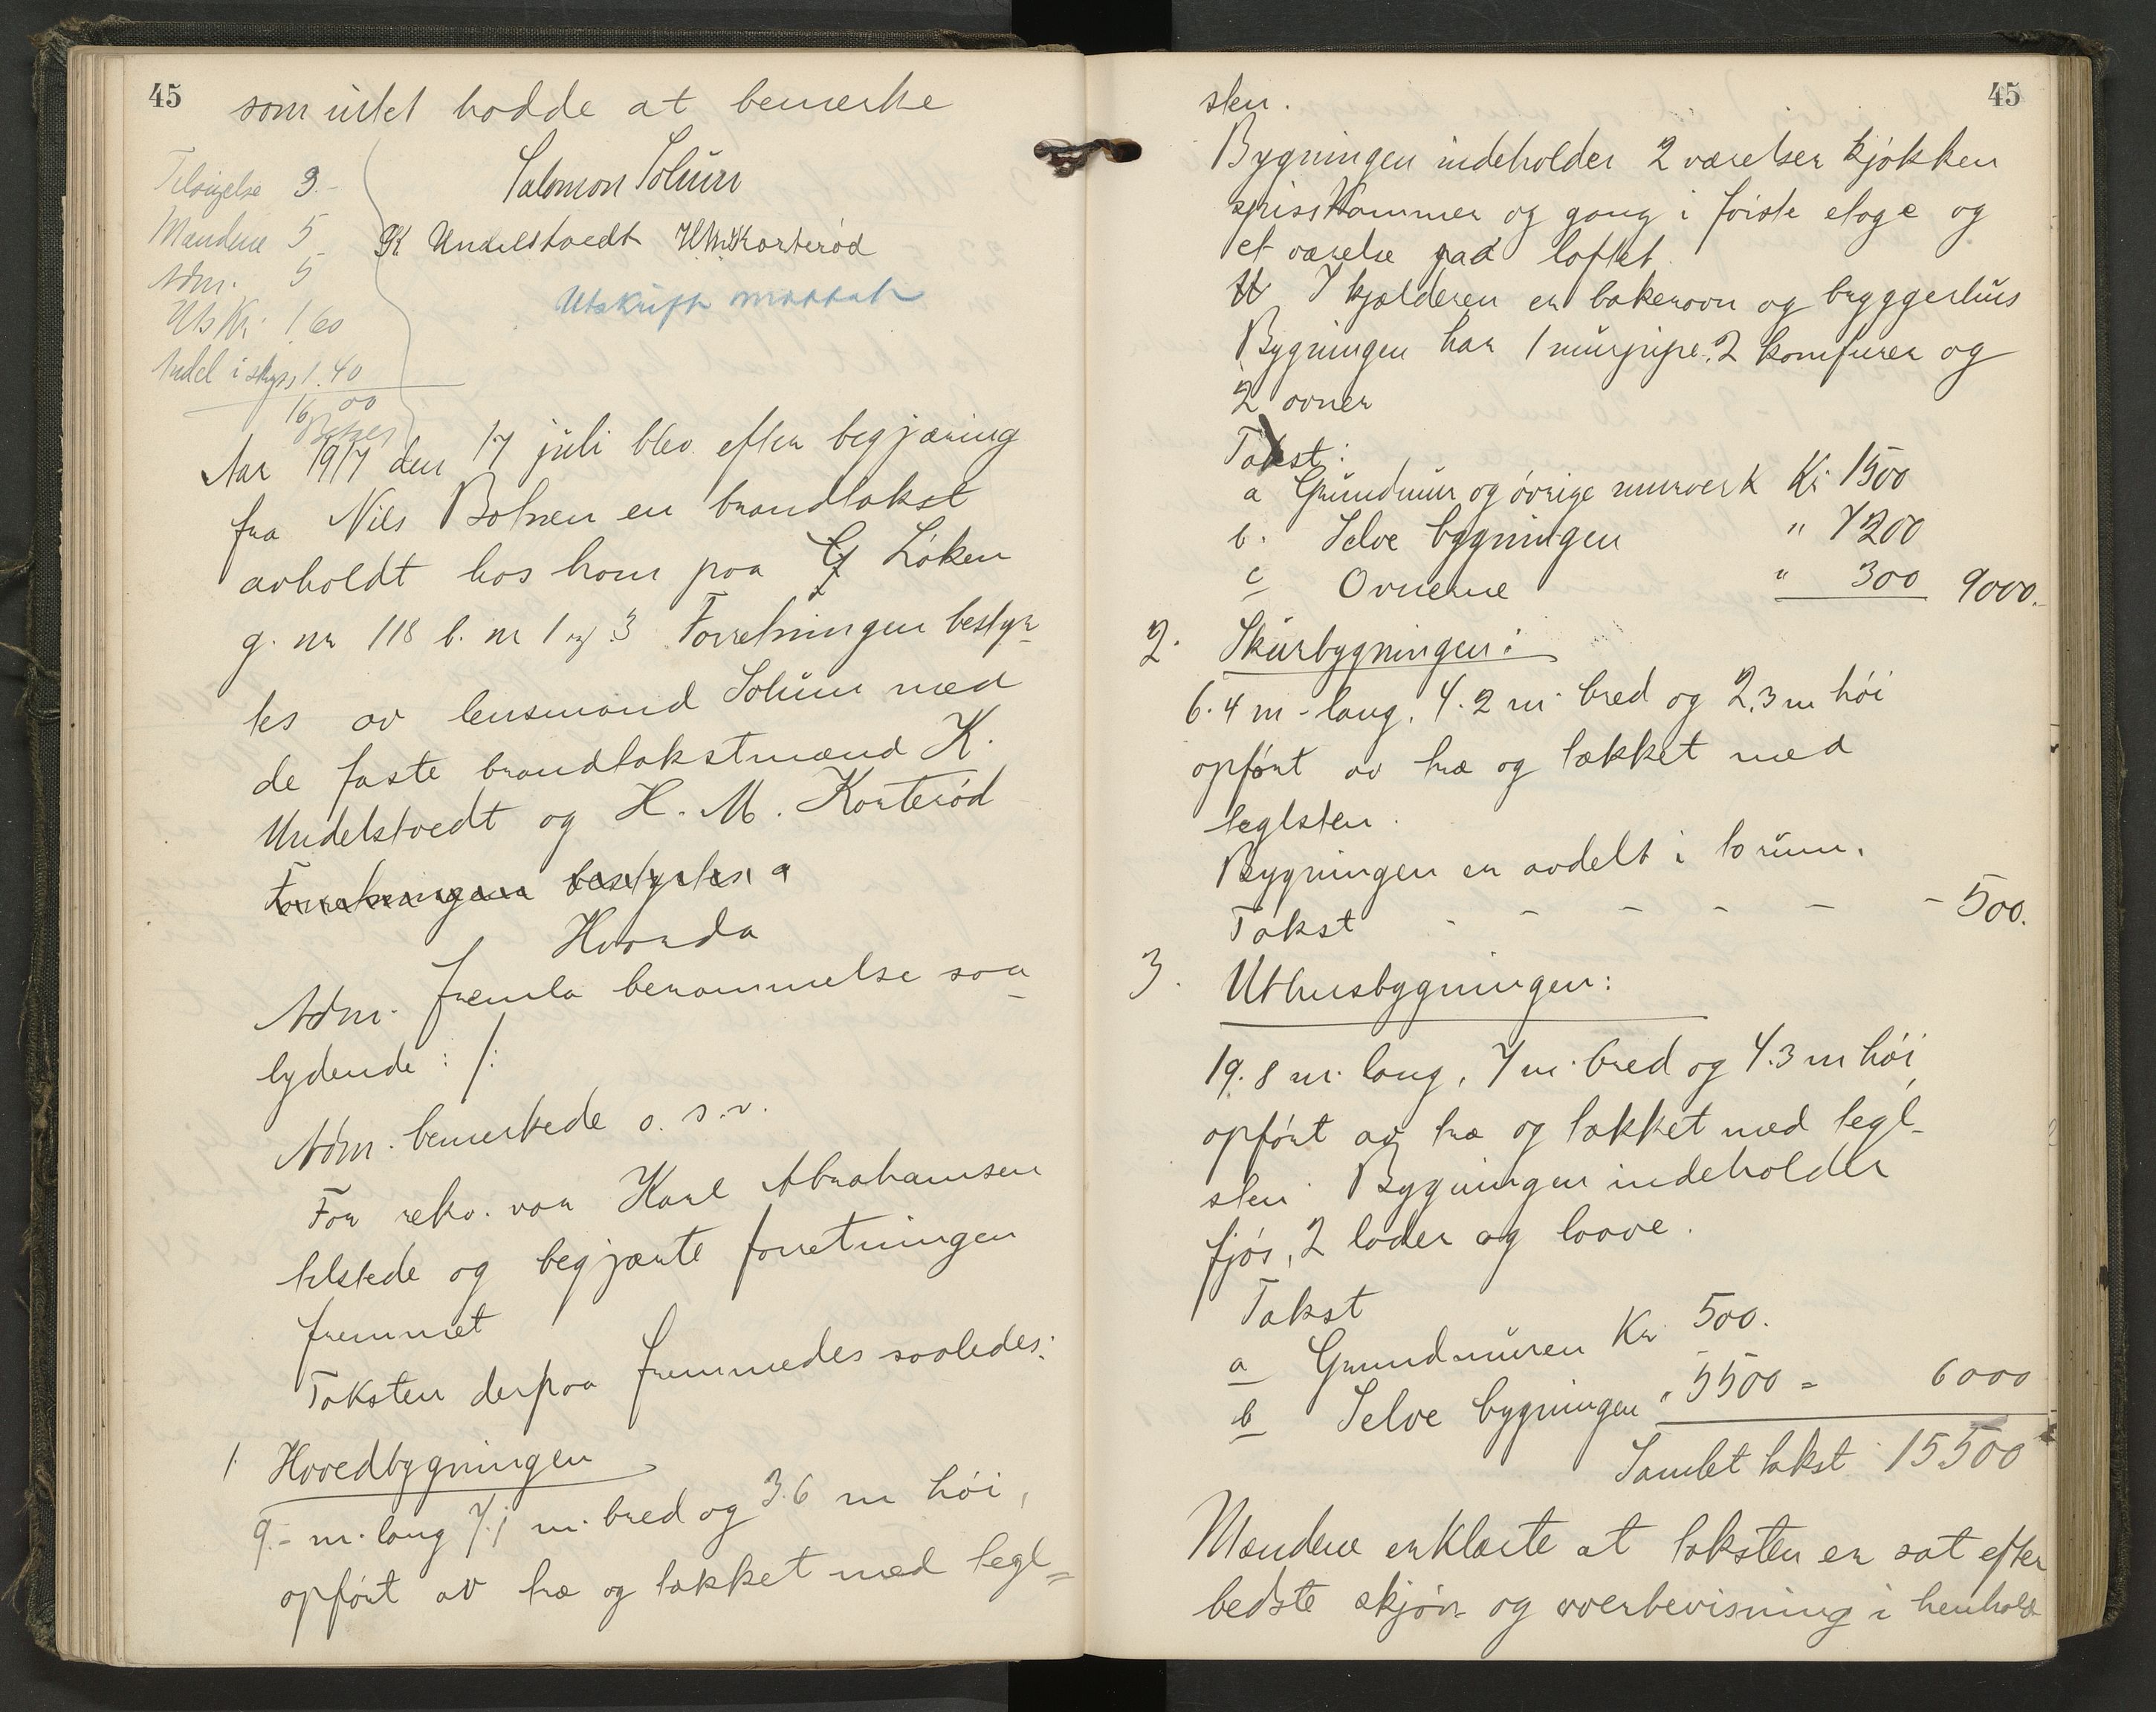 45
som intet hadde at bemerke
Salomon Solum
K Undelstvedt H.M. Korterød
Utskrift mottat
Tilsigelse 3.-
Mændene 5
Adm. 5
Utskr. 1.60
Andel i skyss 1.40
16.00
Aar 1917 den 17 juli blev efter begjæring
fra Nils Bolsen en brandtakst
avholdt hos ham paa Løken
g. nr 118 b. nr 1 og 3 Forretningen besty-
tes av lensmand Solum med
de faste brandtakstmænd K.
Undelstvedt og H. M. Korterød
Forretningen bestyrtes a
Hvorda
Adm. fremla berammelse saa
lydende : /:
Adm. bemerkede o. s. v.
For rekv. var Karl Abrahamsen
tilstede og begjærte forretningen
fremmet
Taksten derpaa fremmedes saaledes:
1. Hovedbygningen
9.- m. lang 7.1 m. bred og 3.6 m høi,
opført av træ og tækket med tegl=
45
sten.
Bygningen indeholder 2 værelser kjøkken
spisskammer og gang i første etage og
et værelse paa loftet
I kjælderen er bakerovn og bryggerhus
Bygningen har 1 murpipe, 2 komfurer og
2 ovner
Takst:
a Grundmur og øvrige murverk Kr 1500
b. Selve bygningen " 7200
c Ovnene " 300 9000.
2. Skurbygningen:
6.4 m - lang, 4.2 m. bred og 2,3 m høi
opført av træ og tækket med
teglsten.
Bygningen er avdelt i to rum.
Takst - - - - - - 500.
3. Uthusbygningen:
19.8 m. lang, 7 m. bred og 4.3 m høi,
opført av træ og tækket med tegl-
sten. Bygningen indeholder
fjøs, 2 lader og laave.
Takst
a Grundmuren Kr 500.
b Selve bygningen " 5500 = 6000
Samlet takst 15500
Mændene erklærte at taksten er sat efter
bedste skjøn og overbevisning i henhold